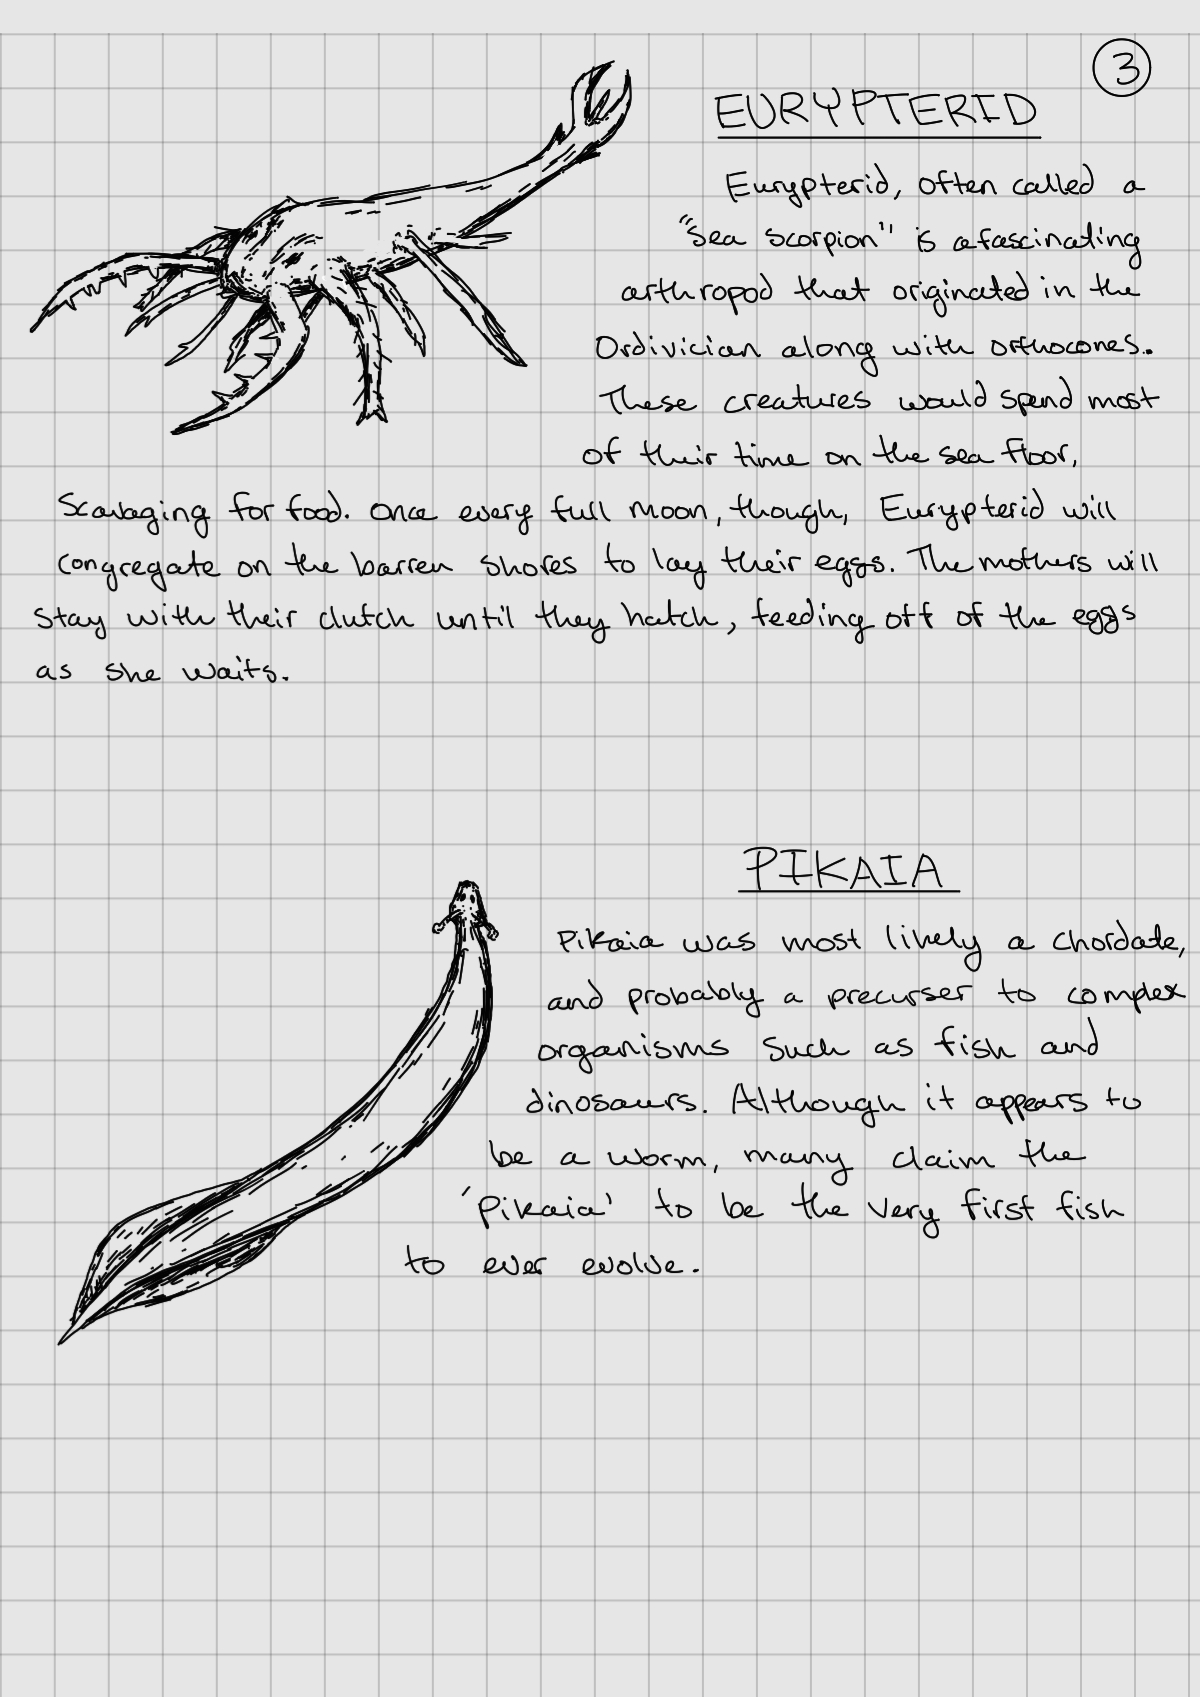 3
EURYPTERID
Eurypterid, often called a
"Sea scorpion" is a fascinating
arthropod that originated in the
Ordivician along with orthocones.
These creatures would spend most
of their time on the sea floor,
Scavaging for food. Once every full moon, though, Eurypterid will
congregate on the barren shores to lay their eggs. The mothers will
stay with their clutch until they hatch, feeding off of the eggs
as she waits.
PIKAIA
Pikaia was most likely a chordate,
and probably a precurser to complex
organisms such as fish and
dinosaurs. Although it appears to
be a worm, many claim the
'Pikaia' to be the very first fish
to ever evolve.